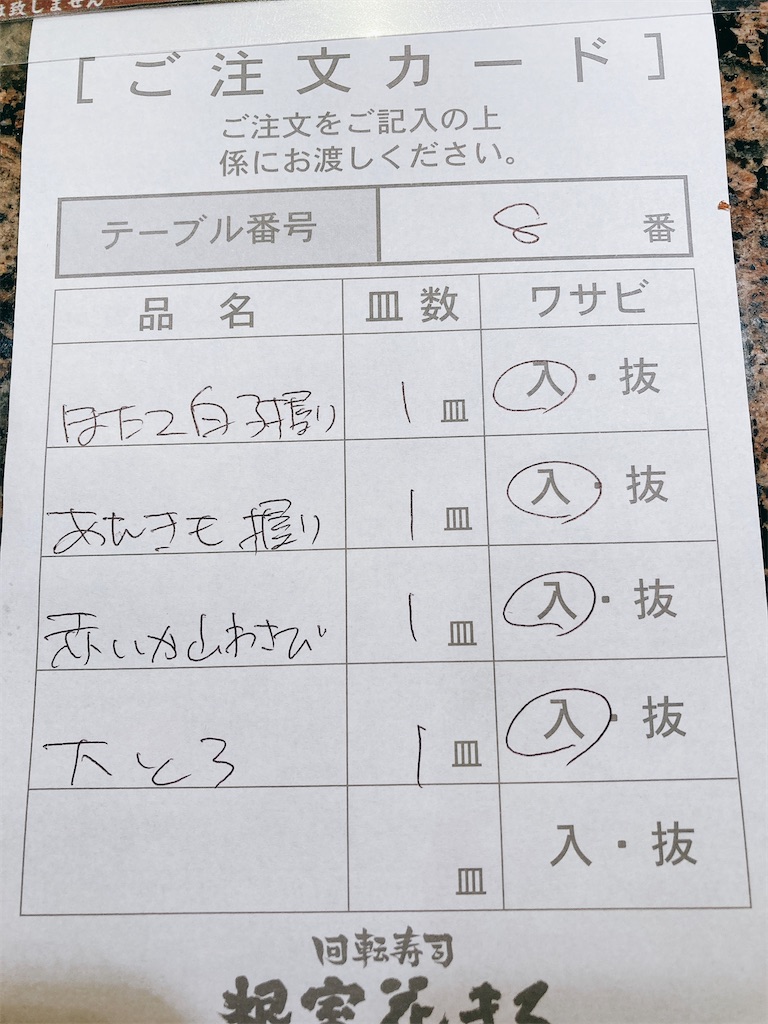 は致しません
[ご注文カード]
ご注文をご記入の上
係にお渡しください。
テーブル番号 8 番
品名 皿数 ワサビ
ほたて白子握り 1 皿 入・抜
あんきも握り 1 皿 入・抜
赤いか山わさび 1 皿 入・抜
大とろ 1 皿 入・抜
皿 入・抜
回転寿司
根室花まる